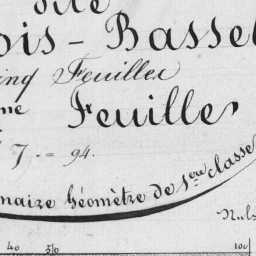 dite
ois-Basse
inq Feuilles
me Feuille
7.= 94.
maize Géomètre de 1ere classe
40 50 100